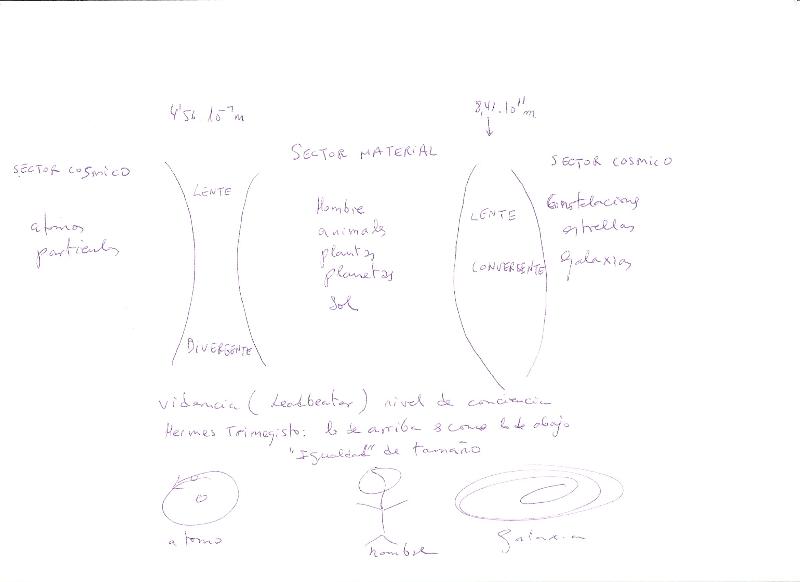 4'56 10⁻⁷m
8,41.10¹¹m
SECTOR COSMICO
atomos
particulas
LENTE
DIVERGENTE
SECTOR MATERIAL
Hombre
animales
plantas
planetas
Sol
LENTE
CONVERGENTE
SECTOR COSMICO
Constelaciones
estrellas
Galaxias
Videncia (Leadbeater) nivel de conciencia
Hermes Trimegisto: lo de arriba es como lo de abajo
"Igualdad" de tamaño
atomo
hombre
Galaxia